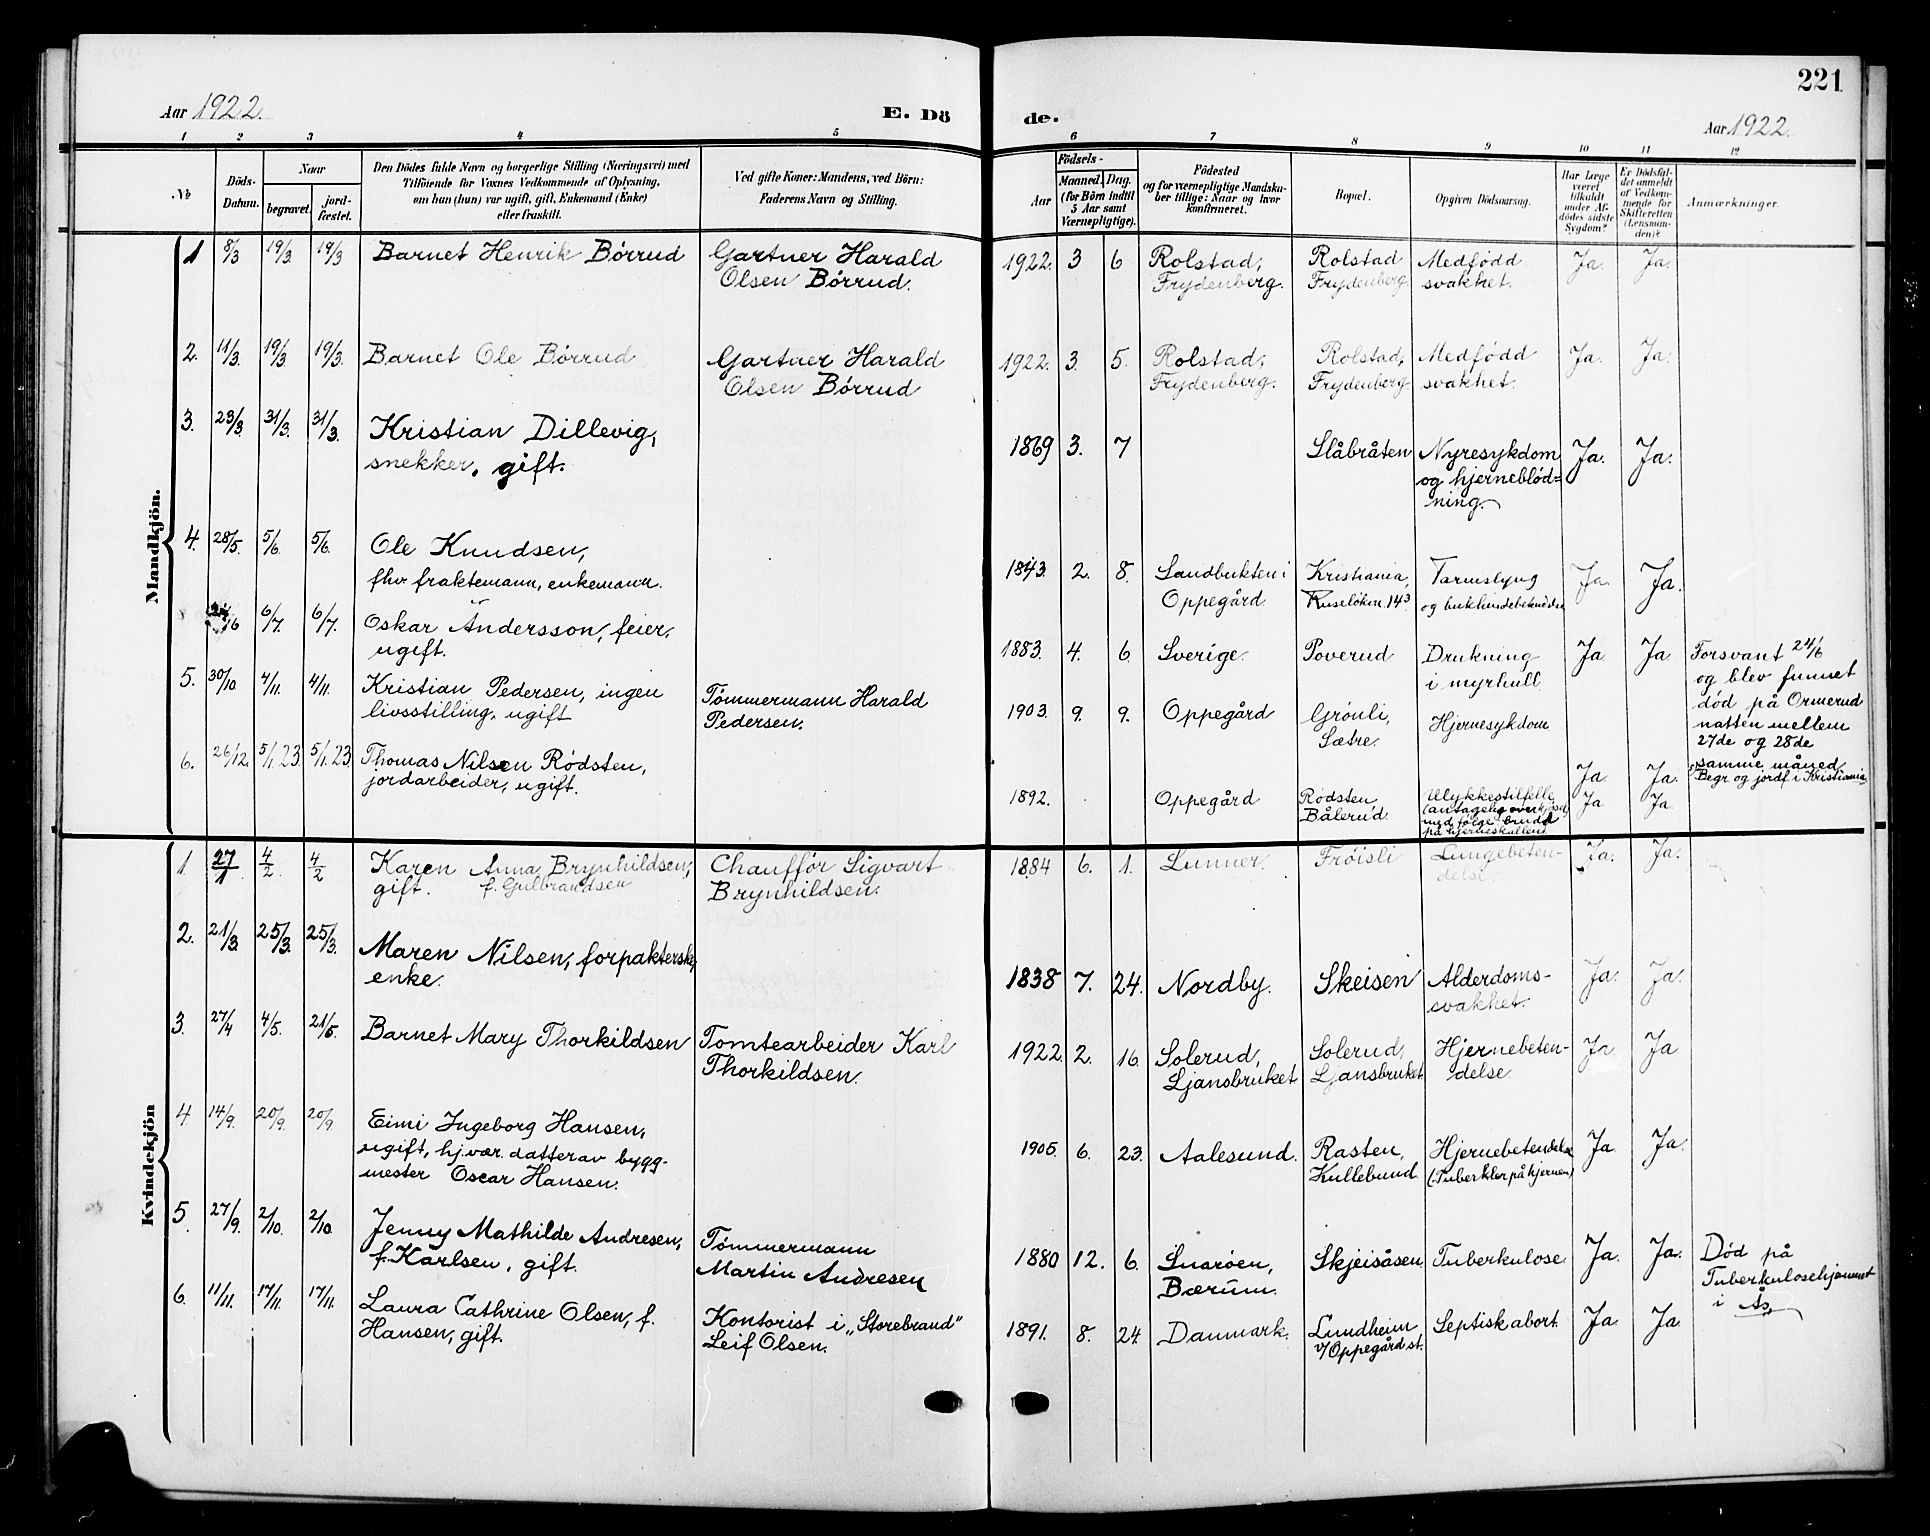 221
Aar 1922.
E. Dö
de.
Aar 1922.
1 2 3 4 5
6 7 8 9 10 11 12
No
Döds-Datum.
Naar
begravet.
jord-fæstet.
Den Dödes fulde Navn og borgerlige Stilling (Næringsvei) med
Tilföiende for Voxnes Vedkommende af Oplysning,
om han (hun) var ugift, gift, Enkemand (Enke)
eller fraskilt.
Ved gifte Koner: Mandens, ved Börn:
Faderens Navn og Stilling.
Födsels-
Aar
Maaned. Dag.
(for Börn indtil
5 Aar samt
Værnepligtige).
Födested
og for værnepligtige Mandska-
ber tillige: Naar og hvor
konfirmeret.
Bopæl.
Opgiven Dödsaarsag.
Har Læge
været
tilkaldt
under Af-
dödes sidste
Sygdom?
Er Dödsfal-
det anmeldt
af Vedkom-
mende for
Skifteretten
(Lensman-
den)?
Anmærkninger.
Mandkjön.
1 8/3 19/3 19/3 Barnet Henrik Børrud Gartner Harald
Olsen Børrud.
1922. 3 6 Rolstad, Rolstad Medfødd Ja. Ja.
Frydenberg. Frydenberg. svakhet.
2. 11/3 19/3 19/3 Barnet Ole Børrud Gartner Harald
Olsen Børrud
1922. 3. 5. Rolstad, Rolstad, Medfødd Ja. Ja.
Frydenberg. Frydenberg. svakhet.
3. 23/3 31/3 31/3 Kristian Dillevig,
snekker, gift.
1869 3. 7 Slåbråten Nyresykdom Ja. Ja.
og hjerneblød=
ning.
4. 28/5 5/6 5/6 Ole Knudsen,
fhv fraktemann, enkemann.
1843. 2. 8. Sandbukten i Kristiania, Tarmslyng Ja. Ja.
Oppegård. Ruseløkn. 143 og
6/7 6/7. Oskar Andersson, feier,
ugift.
1883. 4. 6. Sverige. Poverud Drukning Ja Ja Forsvant 24/6
i myrhull. og blev funnet
død på Ormerud
natten mellem
27de og 28de
samme måned
5. 30/10 4/11. 4/11. Kristian Pedersen, ingen Tømmermann Harald
livsstilling, ugift Pedersen.
1903. 9. 9. Oppegård Grønli, Hjernesykdom
Sætre. Ja. Ja. Begr og jordf i Kristiania
6. 26/12. 5/1.23. 5/1.23 Thomas Nilsen Rødsten,
jordarbeider, ugift.
1892. Oppegård Rødsten, Ulykkestilfelle Ja Ja.
Bålerud. (antagelig overkjørsel
med følge brudd
på hjerneskallen)
Kvindekjön
1 27/1 4/2 4/2 Karen Anna Brynhildsen, Chauffør Sigvart
gift. f. Gulbrandsen Brynhildsen.
1884 6. 1. Lunner. Frøisli Lungebeten- Ja. Ja.
delse.
2. 21/3. 25/3. 25/3. Maren Nilsen, forpakterske,
enke.
1838 7. 24. Nordby. Skeisen Alderdoms- Ja. Ja.
svakhet.
3. 27/4 4/5. 21/5 Barnet Mary Thorkildsen Tomtearbeider Karl
Thorkildsen.
1922. 2. 16. Solerud, Solerud, Hjernebeten- Ja. Ja
Ljansbruket Ljansbruket. delse.
4 14/9. 20/9. 20/9. Eimi Ingeborg Hansen,
ugift, hj.vær. datter av bygg-
mester Oscar Hansen.
1905. 6. 23. Aalesund. Rasten, Hjernebetendelse Ja Ja.
Kullebund. (Tuberkler på hjernen)
5 27/9. 2/10. 2/10. Jenny Mathilde Andresen, Tømmermann
f. Karlsen, gift. Martin Andresen
1880 12. 6. Snarøen, Skjeisåsen. Tuberkulose. Ja. Ja. Død på
Bærum. Tuberkulosehjemmet
i Ås.
6. 11/11. 17/11. 17/11. Laura Cathrine Olsen, f. Kontorist i „Storebrand"
Hansen, gift. Leif Olsen.
1891. 8. 24. Danmark. Lundheim Septisk abort. Ja. Ja
v/ Oppegård st.